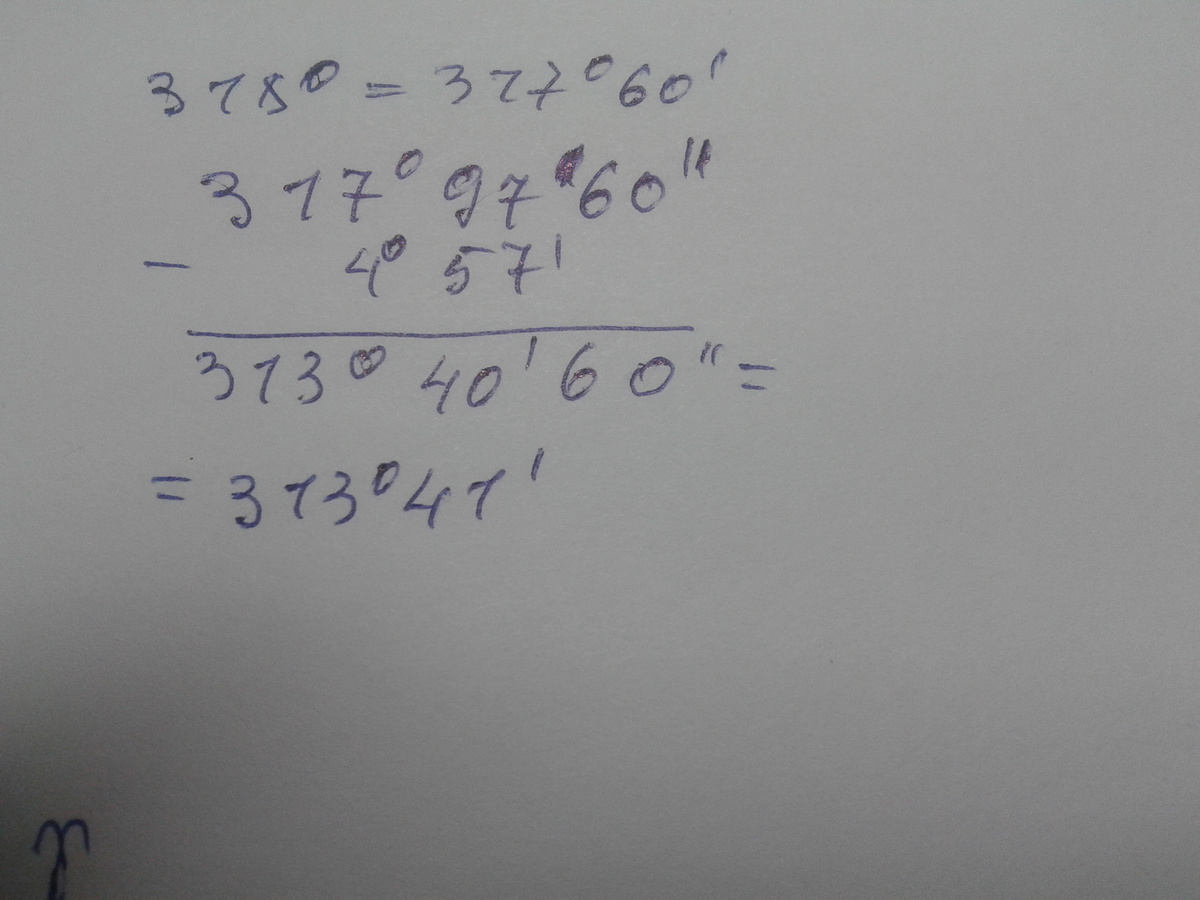 318° = 317°60'
317° 97'60"
− 4° 57'
313° 40'60" =
= 313°41'